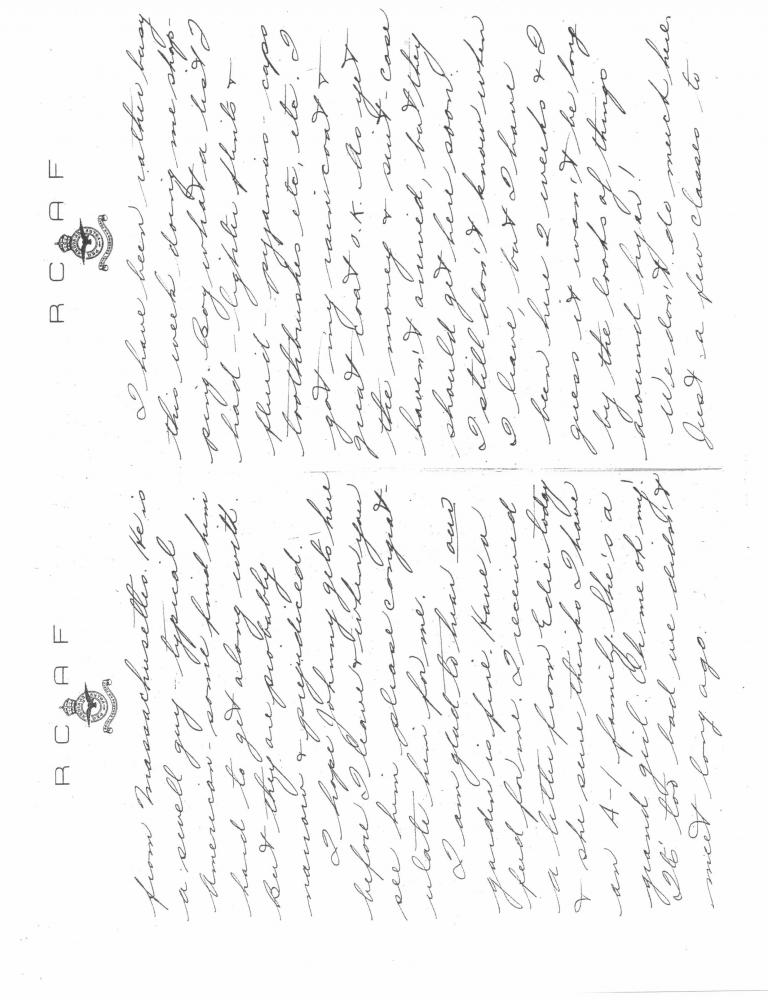 R C A F
from Massachusettes. He is
a swell guy - typical
American - some find him
hard to get along with.
But they are probably
narrow & prejudiced.
I hope Johnny gets here
before I leave & when you
see him please congrat-
ulate him for me.
I am glad to hear our
garden is fine. Have a
feed for me. I received
a letter from Edie today
& she sure thinks I have
an A-1 family. She's a
grand girl. Oh me oh my!
It's too bad we didn't
meet long ago.
R C A F
I have been rather busy
this week doing me shop-
ping. Boy what a list I
had - lighter flints &
fluid - pyjamas - caps
toothbrushes etc, etc. I
got my raincoat &
great coat O.K. As yet
the money & suit-case
haven't arrived, but they
should get here soon.
I still don't know when
I leave, but I have
been here 2 weeks & I
guess it won't be long
by the looks of things
around hyar!
We don't do much here.
Just a few classes to